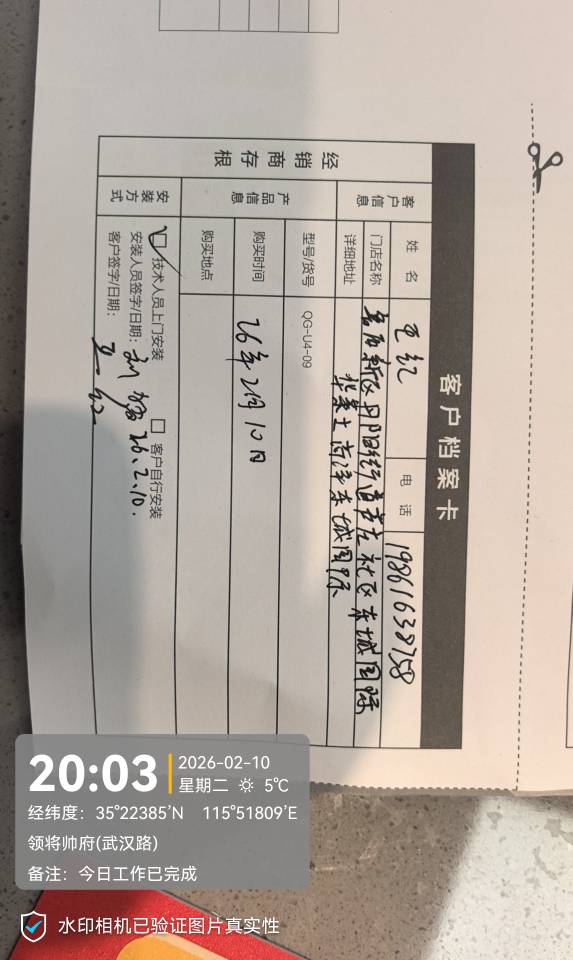 客户档案卡
经销商存根
客户信息
姓 名 王红
电 话 19861638758
门店名称
街道 社区 东城国际
详细地址
东城国际
产品信息
型号/货号 QG-U4-09
购买时间 26年2月10日
购买地点
安装方式
技术人员上门安装 客户自行安装
安装人员签字/日期: 26.2.10.
客户签字/日期: 王红
20:03
2026-02-10
星期二 5℃
经纬度: 35°22385'N 115°51809'E
领将帅府(武汉路)
备注: 今日工作已完成
水印相机已验证图片真实性